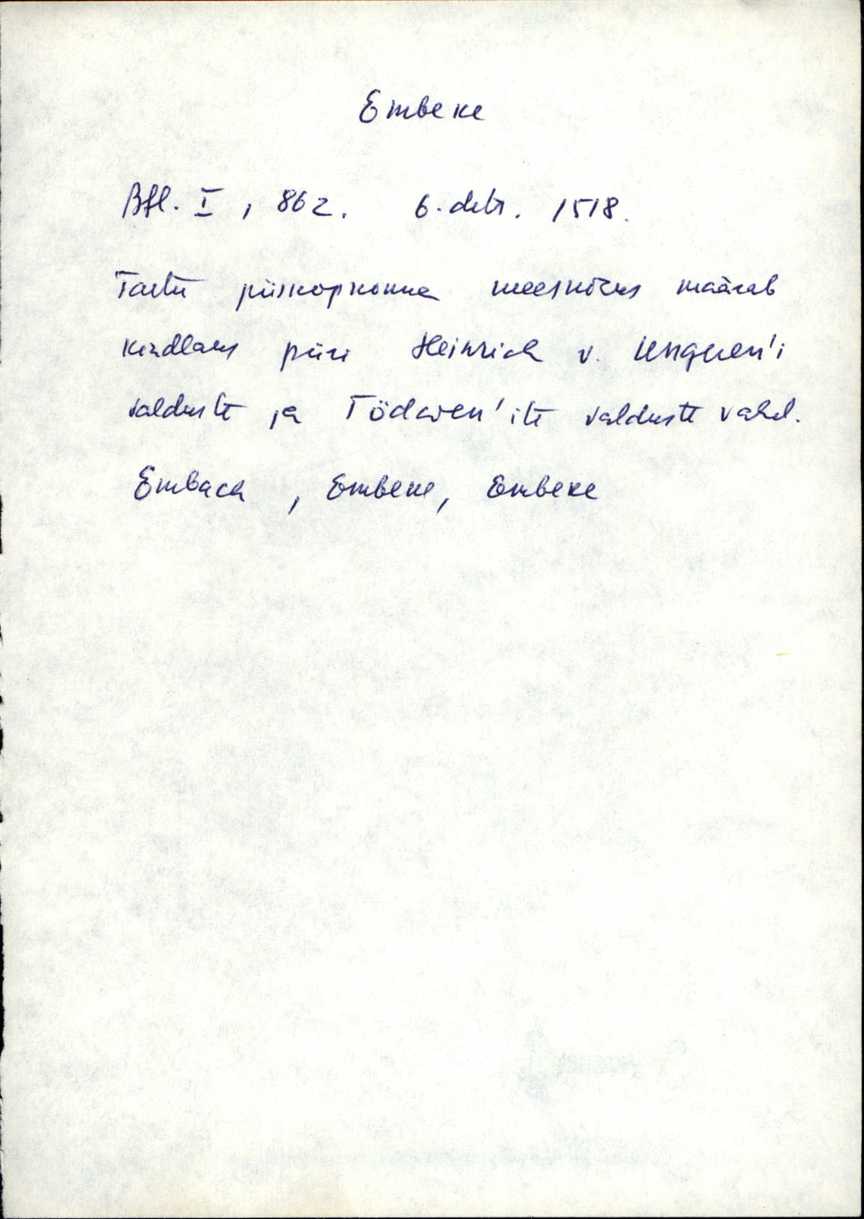 Embeke
Bfl. I, 862. 6. dets. 1518.
Tartu piiskopkonna meeskohus määrab
kindlaks piiri Heinrich v. Ungeren'i
valduste ja Tödwen'ite valduste vahel.
Embaca, Embeke, Embeke